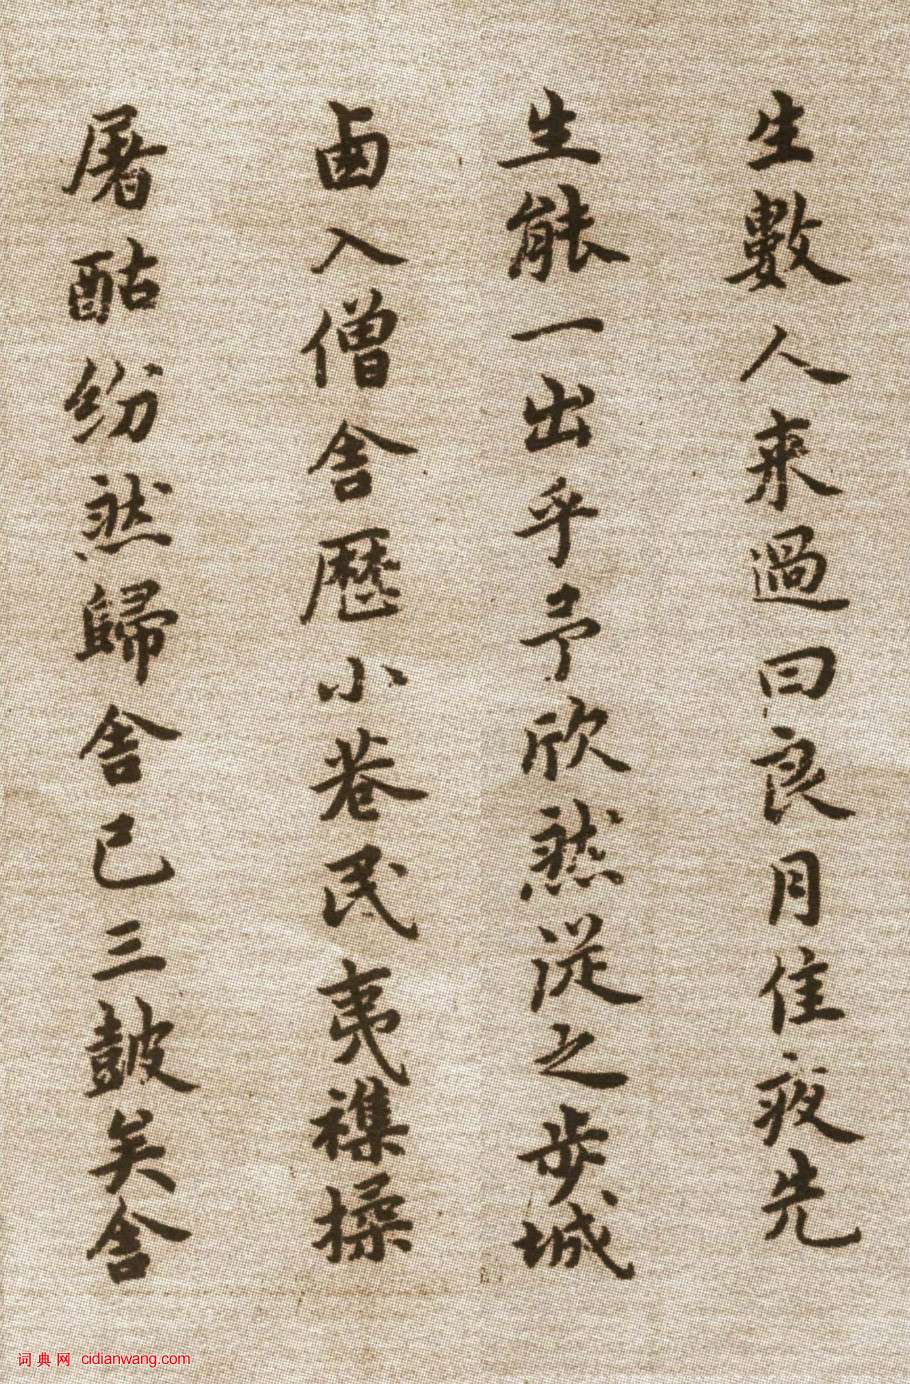 生數人來過曰良月佳夜先
生能一出乎予欣然從之步城
西入僧舍歷小巷民夷襍揉
屠酤紛然歸舍已三鼓矣舍
词典网 cidianwang.com